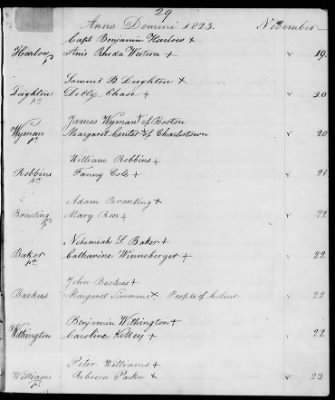 29
Anno Domini 1823. November
Capt Benjamin Harlow +
Harlow pd Miss Rhoda Weston + 19
Samuel B. Leighton +
Leighton pd Dolly Chase + 20
James Wyman + of Boston
Wyman pd Margaret Center + of Charlestown 20
William Robbins +
Robbins pd Fanny Cole + 21
Adam Branting +
Branting pd Mary Rose + 22
Nehemiah S. Baker +
Baker pd Catharine Winneberger + 22
John Backus +
Backus Margaret + People of Colour 22
Benjamin Withington +
Withington Caroline Kelley + 22
Peter Williams +
Williams pd Rebecca Parker + 23